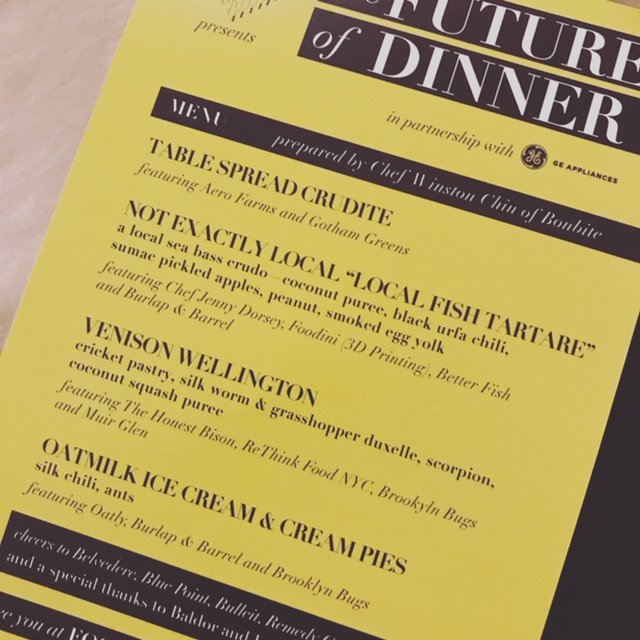 presents
FUTURE
of DINNER
in partnership with GE APPLIANCES
MENU prepared by Chef Winston Chiu of Bonbite
TABLE SPREAD CRUDITE
featuring Aero Farms and Gotham Greens
NOT EXACTLY LOCAL "LOCAL FISH TARTARE"
a local sea bass crudo - coconut puree, black urfa chili,
sumac pickled apples, peanut, smoked egg yolk
featuring Chef Jenny Dorsey, Foodini (3D Printing), Better Fish
and Burlap & Barrel
VENISON WELLINGTON
cricket pastry, silk worm & grasshopper duxelle, scorpion,
coconut squash puree
featuring The Honest Bison, ReThink Food NYC, Brookyln Bugs
and Muir Glen
OATMILK ICE CREAM & CREAM PIES
silk chili, ants
featuring Oatly, Burlap & Barrel and Brooklyn Bugs
cheers to Belvedere, Blue Point, Bulleit, Remedy,
and a special thanks to Baldor and
you at